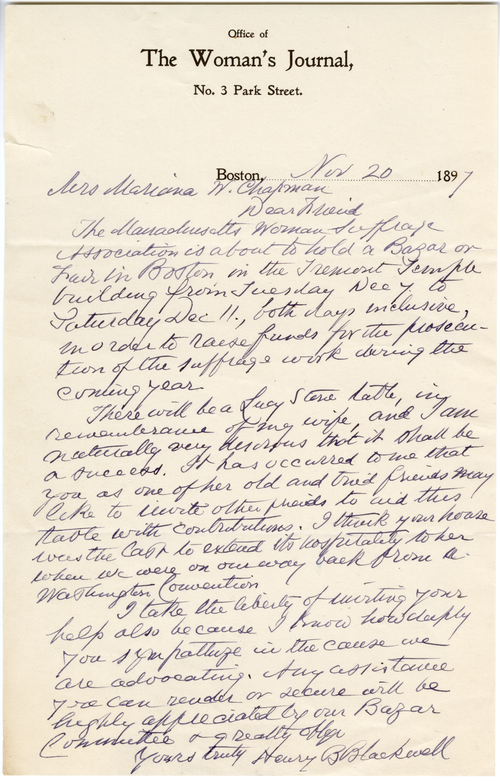 Office of
The Woman's Journal,
No. 3 Park Street.
Boston, Nov 20 1897
Mrs Mariana W. Chapman
Dear Friend
The Massachusetts Woman Suffrage
Association is about to hold a Bazar or
Fair in Boston in the Tremont Temple
building from Tuesday Dec 7 to
Saturday Dec 11., both days inclusive,
in order to raise funds for the prosecu-
tion of the suffrage work during the
coming year
There will be a Lucy Stone table, in
remembrance of my wife, and I am
naturally very desirous that it shall be
a success. It has occurred to me that
you as one of her old and tried friends may
like to invite other friends to aid this
table with contributions. I think your house
was the last to extend its hospitality to her
when we were on our way back from a
Washington Convention
I take the liberty of inviting your
help also because I know how deeply
you sympathize in the cause we
are advocating. Any assistance
you can render or secure will be
highly appreciated by our Bazar
Committee & greatly
Yours truly Henry B Blackwell